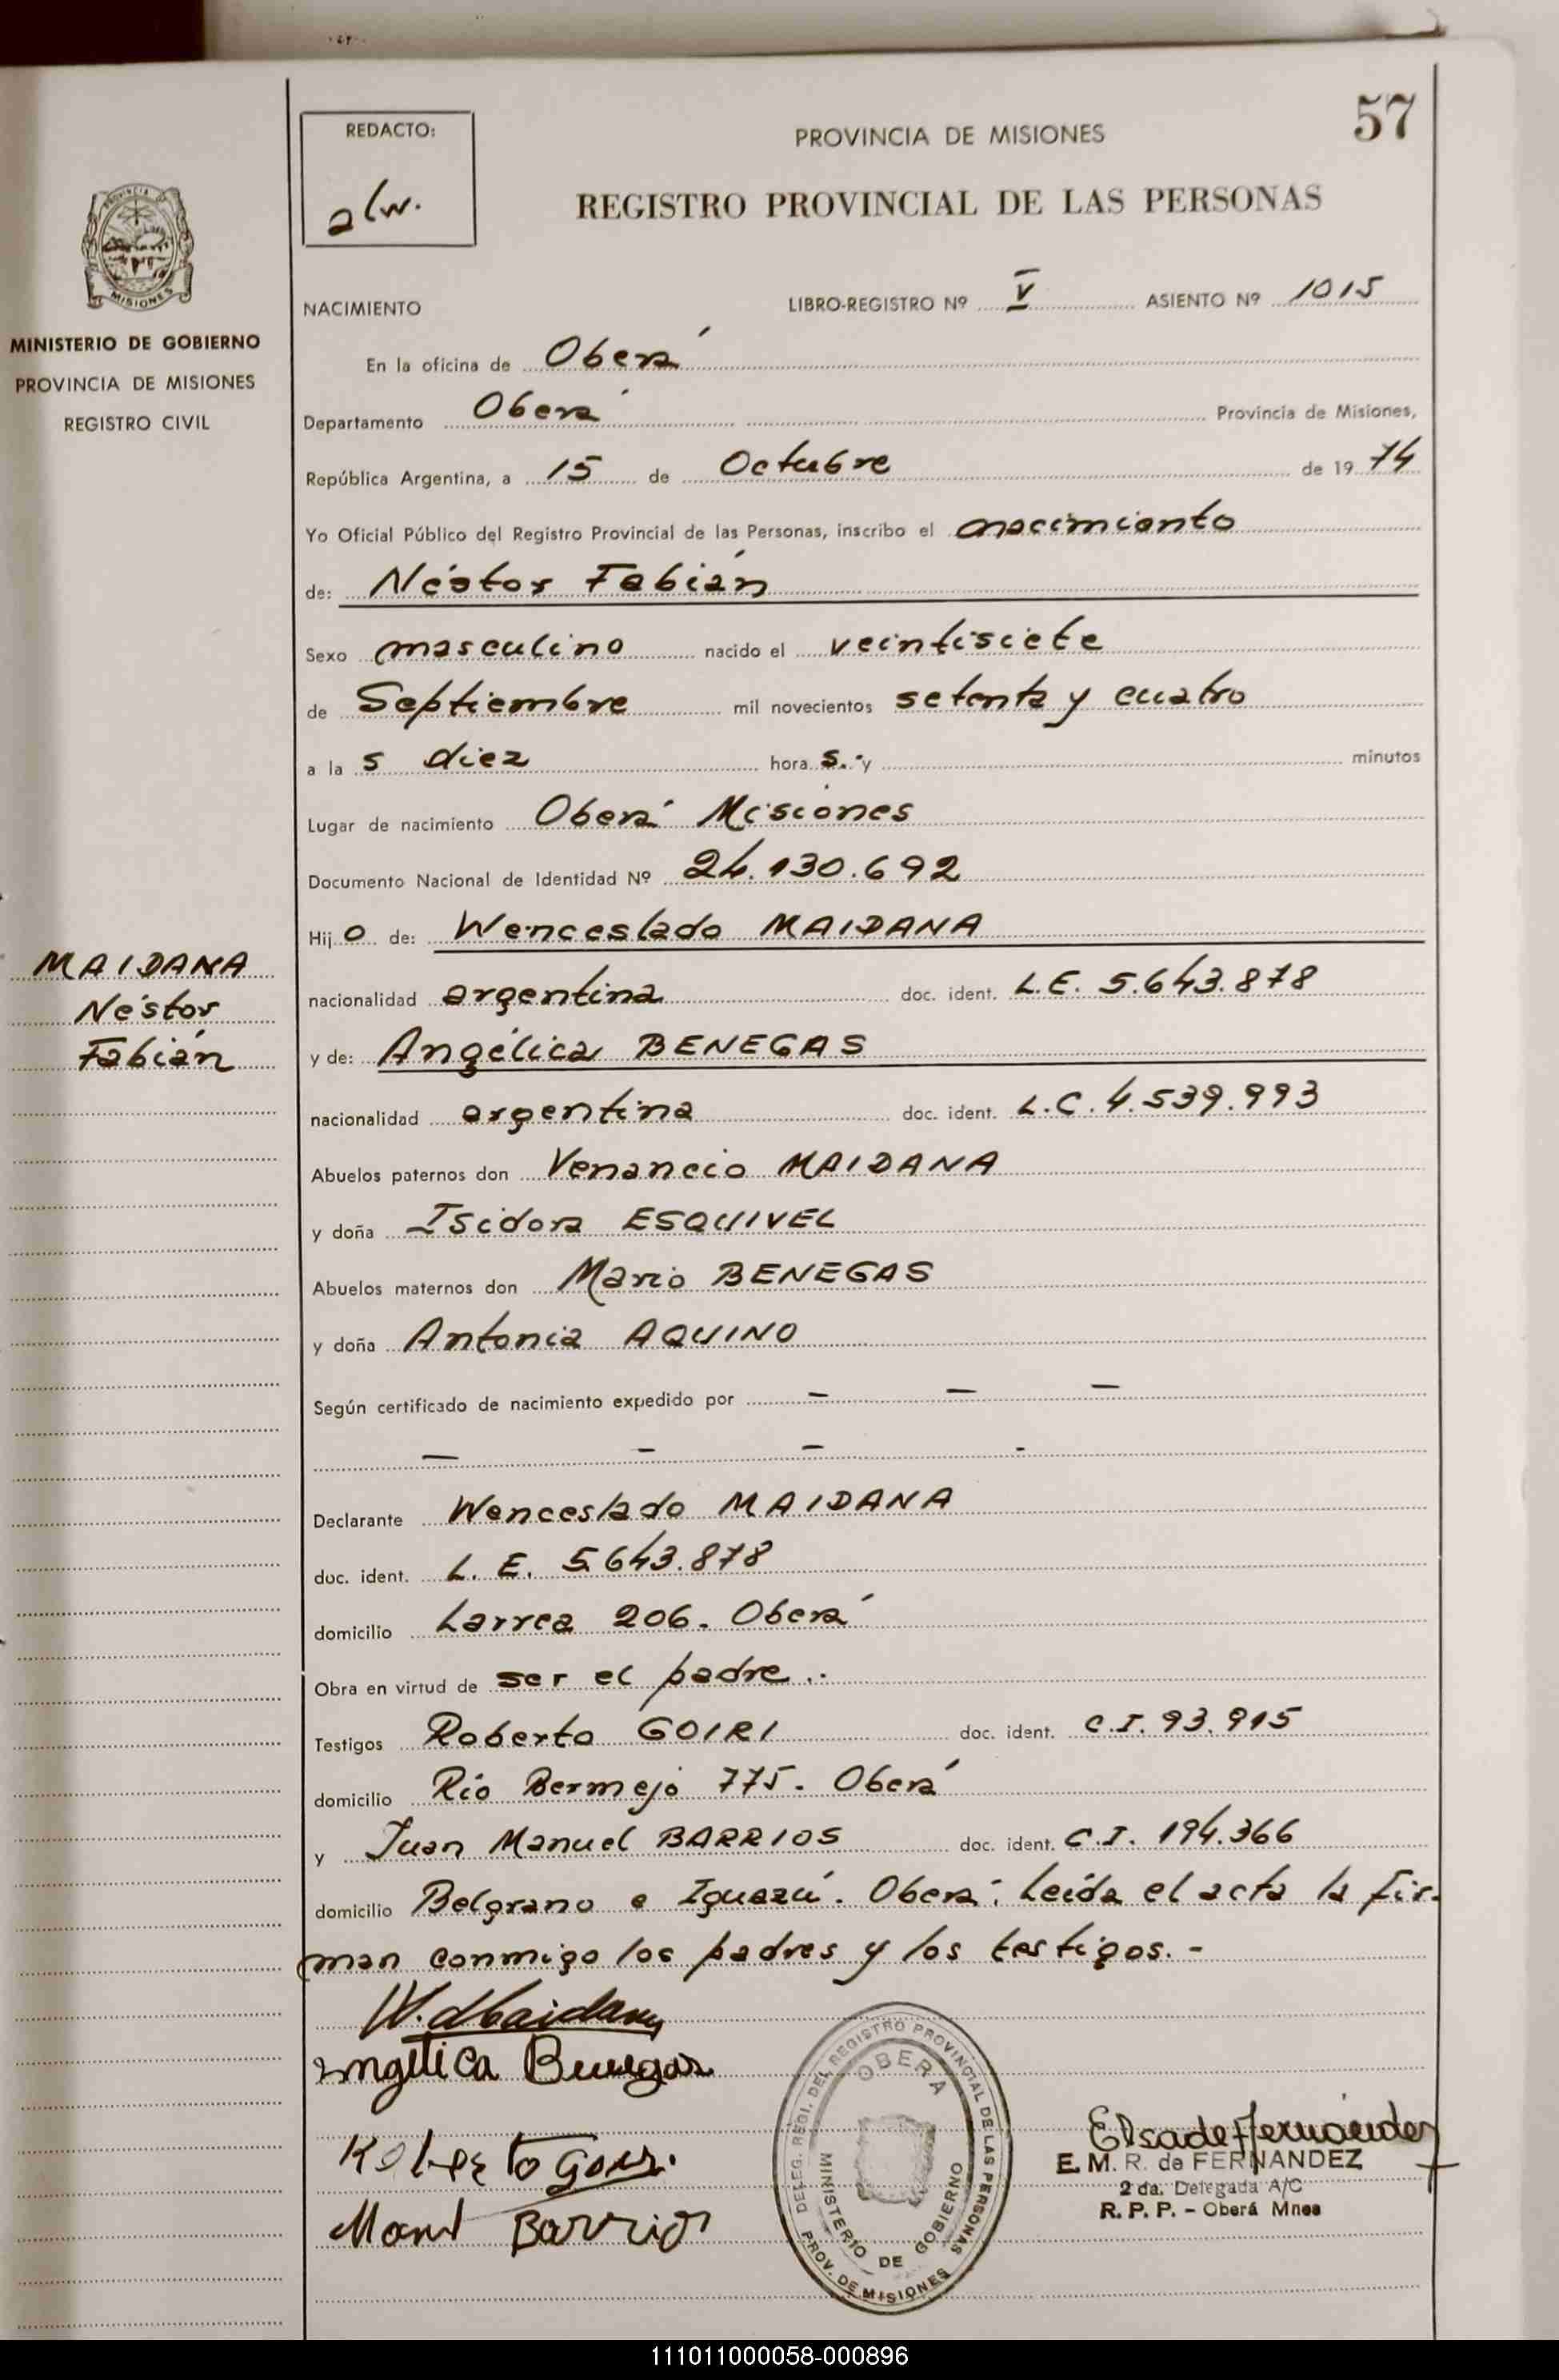 57
REDACTO:
alw.
PROVINCIA DE MISIONES
REGISTRO PROVINCIAL DE LAS PERSONAS
PROVINCIA
MISIONES
MINISTERIO DE GOBIERNO
PROVINCIA DE MISIONES
REGISTRO CIVIL
NACIMIENTO LIBRO-REGISTRO Nº V ASIENTO Nº 1015
En la oficina de Oberá
Departamento Oberá Provincia de Misiones,
República Argentina, a 15 de Octubre de 1974
Yo Oficial Público del Registro Provincial de las Personas, inscribo el nacimiento
de: Néstor Fabián
Sexo masculino nacido el veintisiete
de Septiembre mil novecientos setenta y cuatro
a la s diez hora s. y minutos
Lugar de nacimiento Oberá Misiones
Documento Nacional de Identidad Nº 24.130.692
Hij o de: Wenceslado MAIDANA
MAIDANA
Néstor
Fabián
nacionalidad argentina doc. ident. L.E. 5.643.878
y de: Angélica BENEGAS
nacionalidad argentina doc. ident. L.C. 4.539.993
Abuelos paternos don Venancio MAIDANA
y doña Isidora ESQUIVEL
Abuelos maternos don Mario BENEGAS
y doña Antonia AQUINO
Según certificado de nacimiento expedido por — — —
— — — -
Declarante Wenceslado MAIDANA
doc. ident. L. E. 5.643.878
domicilio Larrea 206. Oberá
Obra en virtud de ser el padre.-
Testigos Roberto GOIRI doc. ident. C.I. 93.915
domicilio Río Bermejo 775. Oberá
y Juan Manuel BARRIOS doc. ident. C.I. 194.366
domicilio Belgrano e Iguazú. Oberá. Leída el acta la fir-
man conmigo los padres y los testigos. -
W. Maidana
Angelica Benegas
Roberto Goiri
Manuel Barrios
DELEG. REGI. DEL REGISTRO PROVINCIAL DE LAS PERSONAS
OBERA
MINISTERIO DE GOBIERNO
PROV. DE MISIONES
Elsa de Fernández
E. M. R. de FERNANDEZ
2 da. Delegada A/C
R. P. P. - Oberá Mnes
111011000058-000896